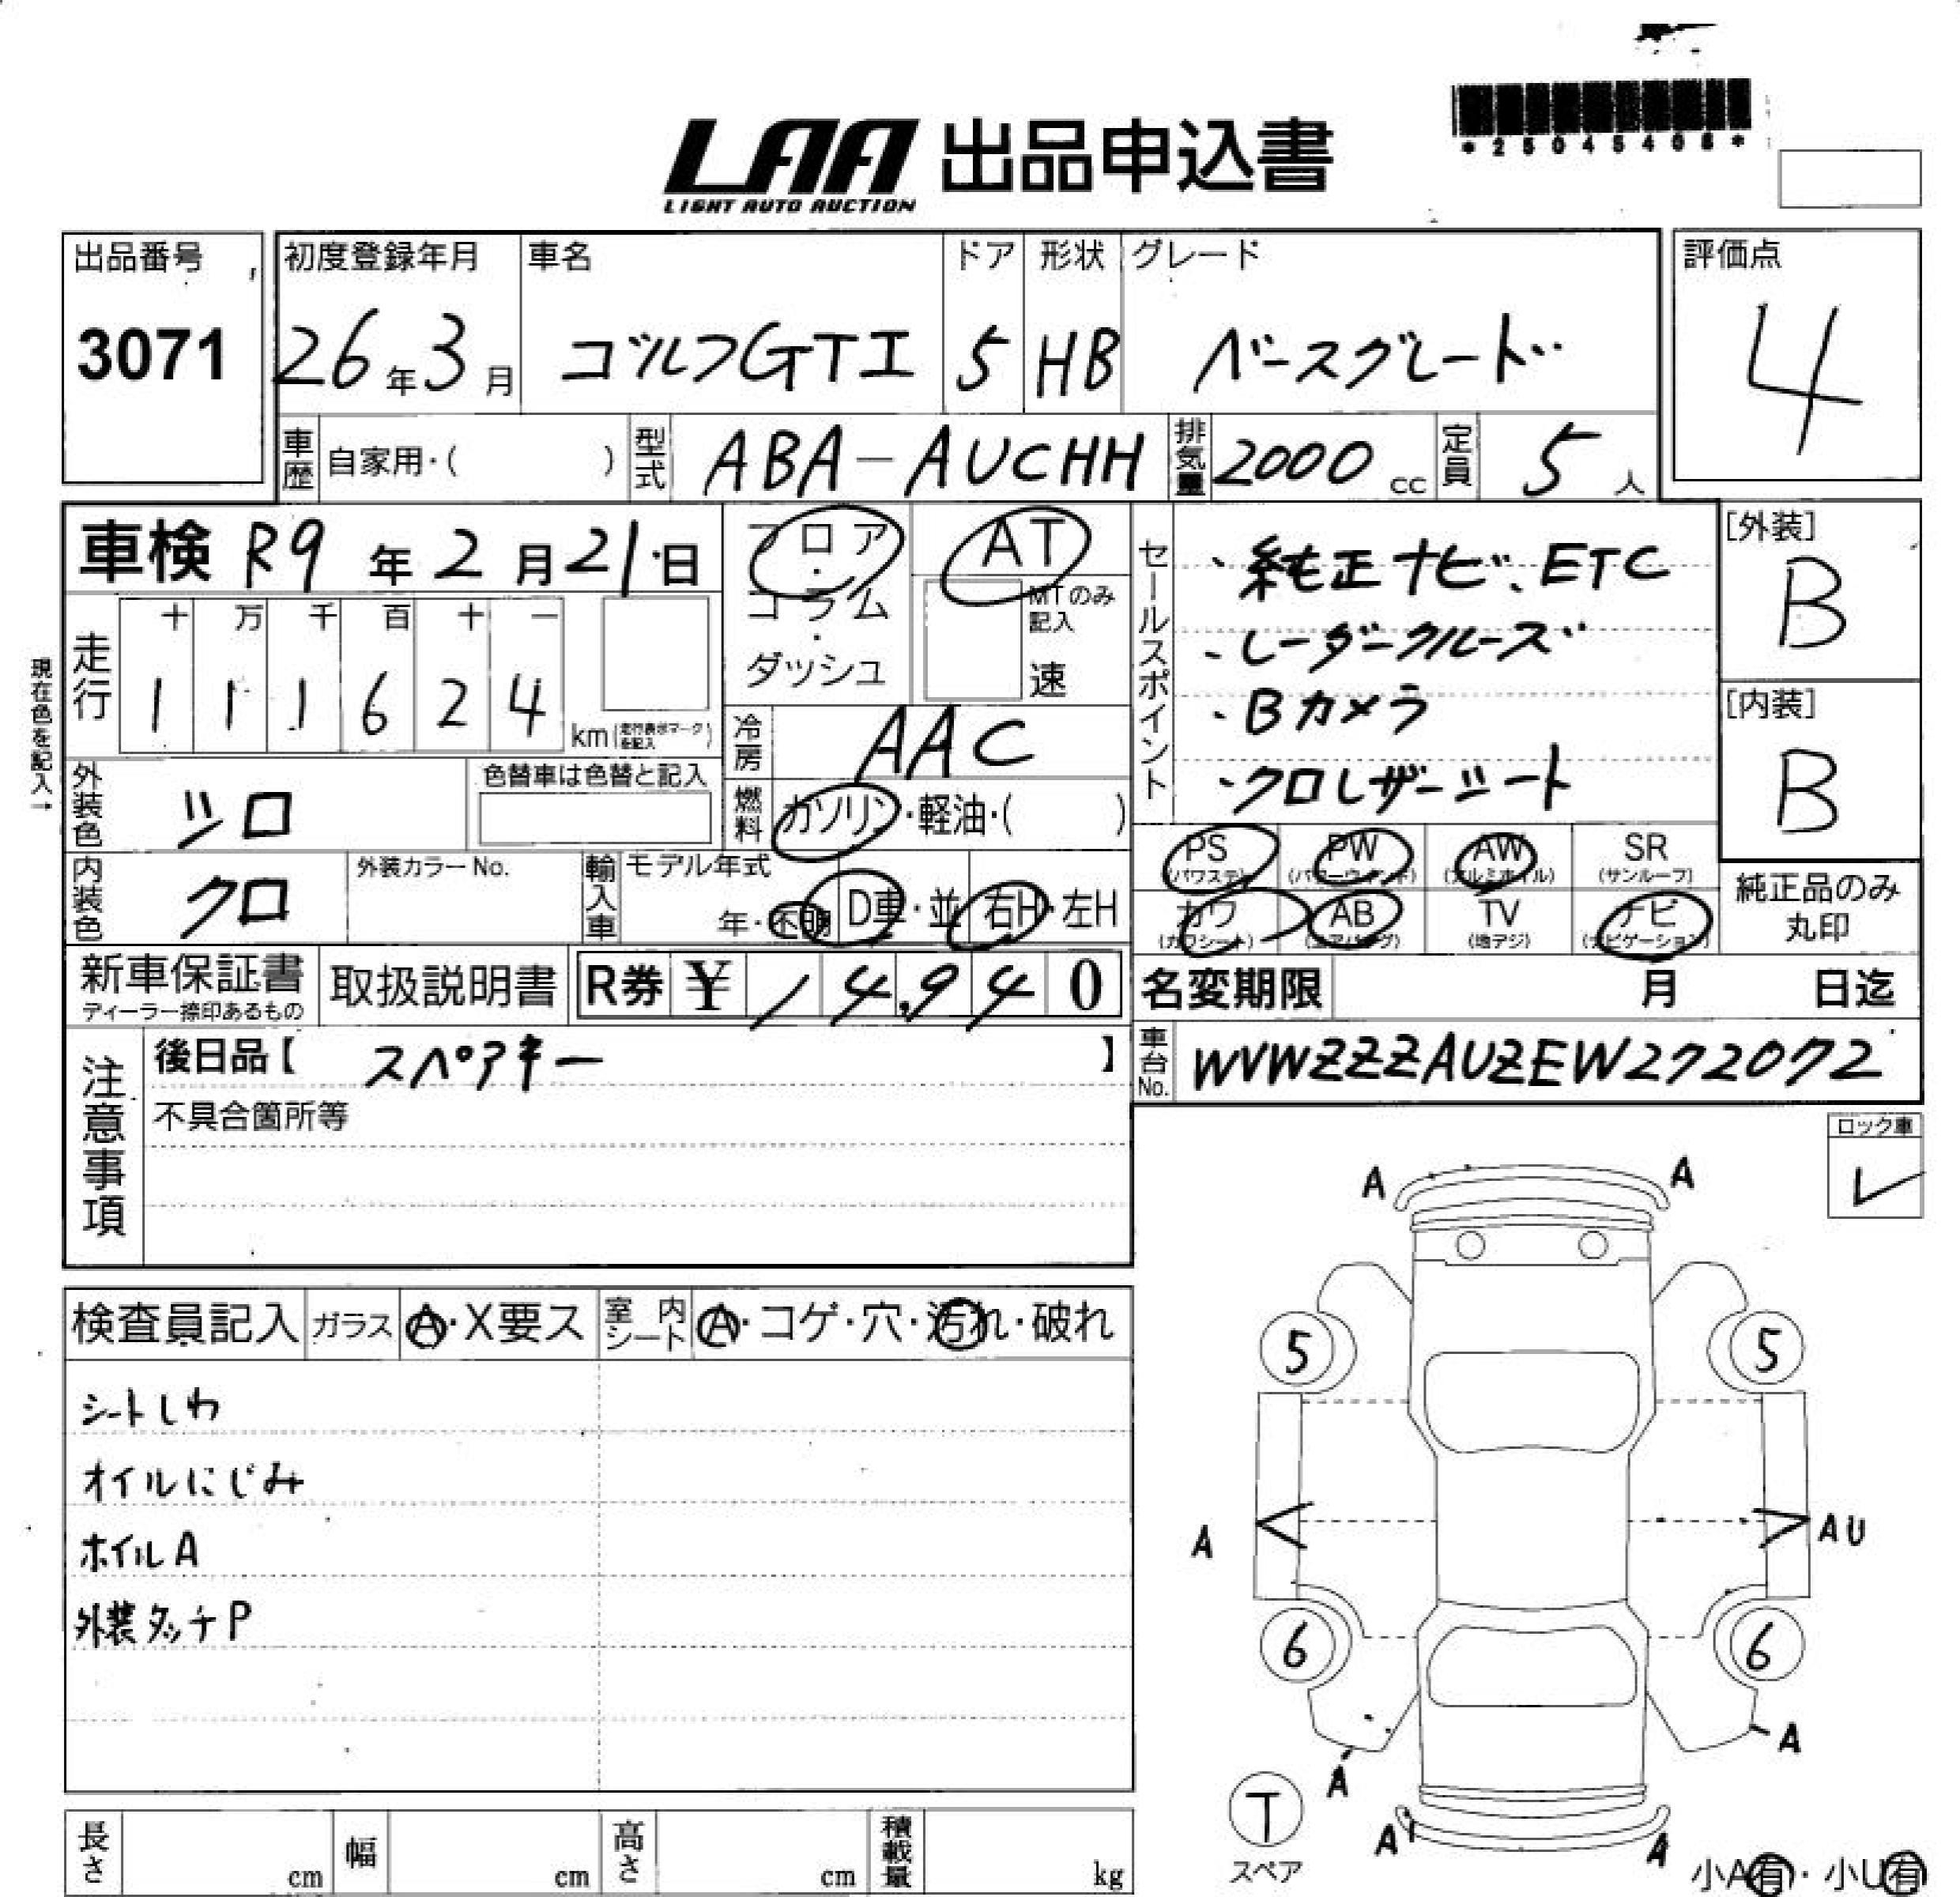 *25045408*
LAA 出品申込書
LIGHT AUTO AUCTION
出品番号 初度登録年月 車名 ドア 形状 グレード 評価点
3071 26年3月 ゴルフGTI 5 HB ベースグレード 4
車歴 自家用・( ) 型式 ABA-AUCHH 排気量 2000cc 定員 5人
車検 R9年2月21日 フロア・コラム・ダッシュ AT
MTのみ記入 速
現在色を記入→
走行 十 万 千 百 十 一
1 1 1 6 2 4 km(走行表示マークを記入)
冷房 AAC
セールスポイント
・純正ナビ、ETC
・レーダークルーズ
・Bカメラ
・クロレザーシート
[外装]
B
[内装]
B
外装色 シロ 色替車は色替と記入
燃料 ガソリン・軽油・( )
内装色 クロ 外装カラーNo. 輸入車 モデル年式 年・不明 D車・並 右H・左H
PS (パワステ) PW (パワーウインド) AW (アルミホイル) SR (サンルーフ)
カワ (カワシート) AB (エアバッグ) TV (地デジ) ナビ (ナビゲーション)
純正品のみ丸印
新車保証書 ディーラー捺印あるもの 取扱説明書 R券 ¥ 14,940 名変期限 月 日迄
注意事項
後日品【 スペアキー 】
車台No. WVWZZZAUZEW272072
不具合箇所等
ロック車
✓
検査員記入 ガラス A・X要ス 室内シート A・コゲ・穴・汚れ・破れ
シートしわ
オイルにじみ
ホイルA
外装タッチP
A A
5 5
A AU
6 6
A A
T
スペア
A A
小A有・小U有
長さ cm 幅 cm 高さ cm 積載量 kg